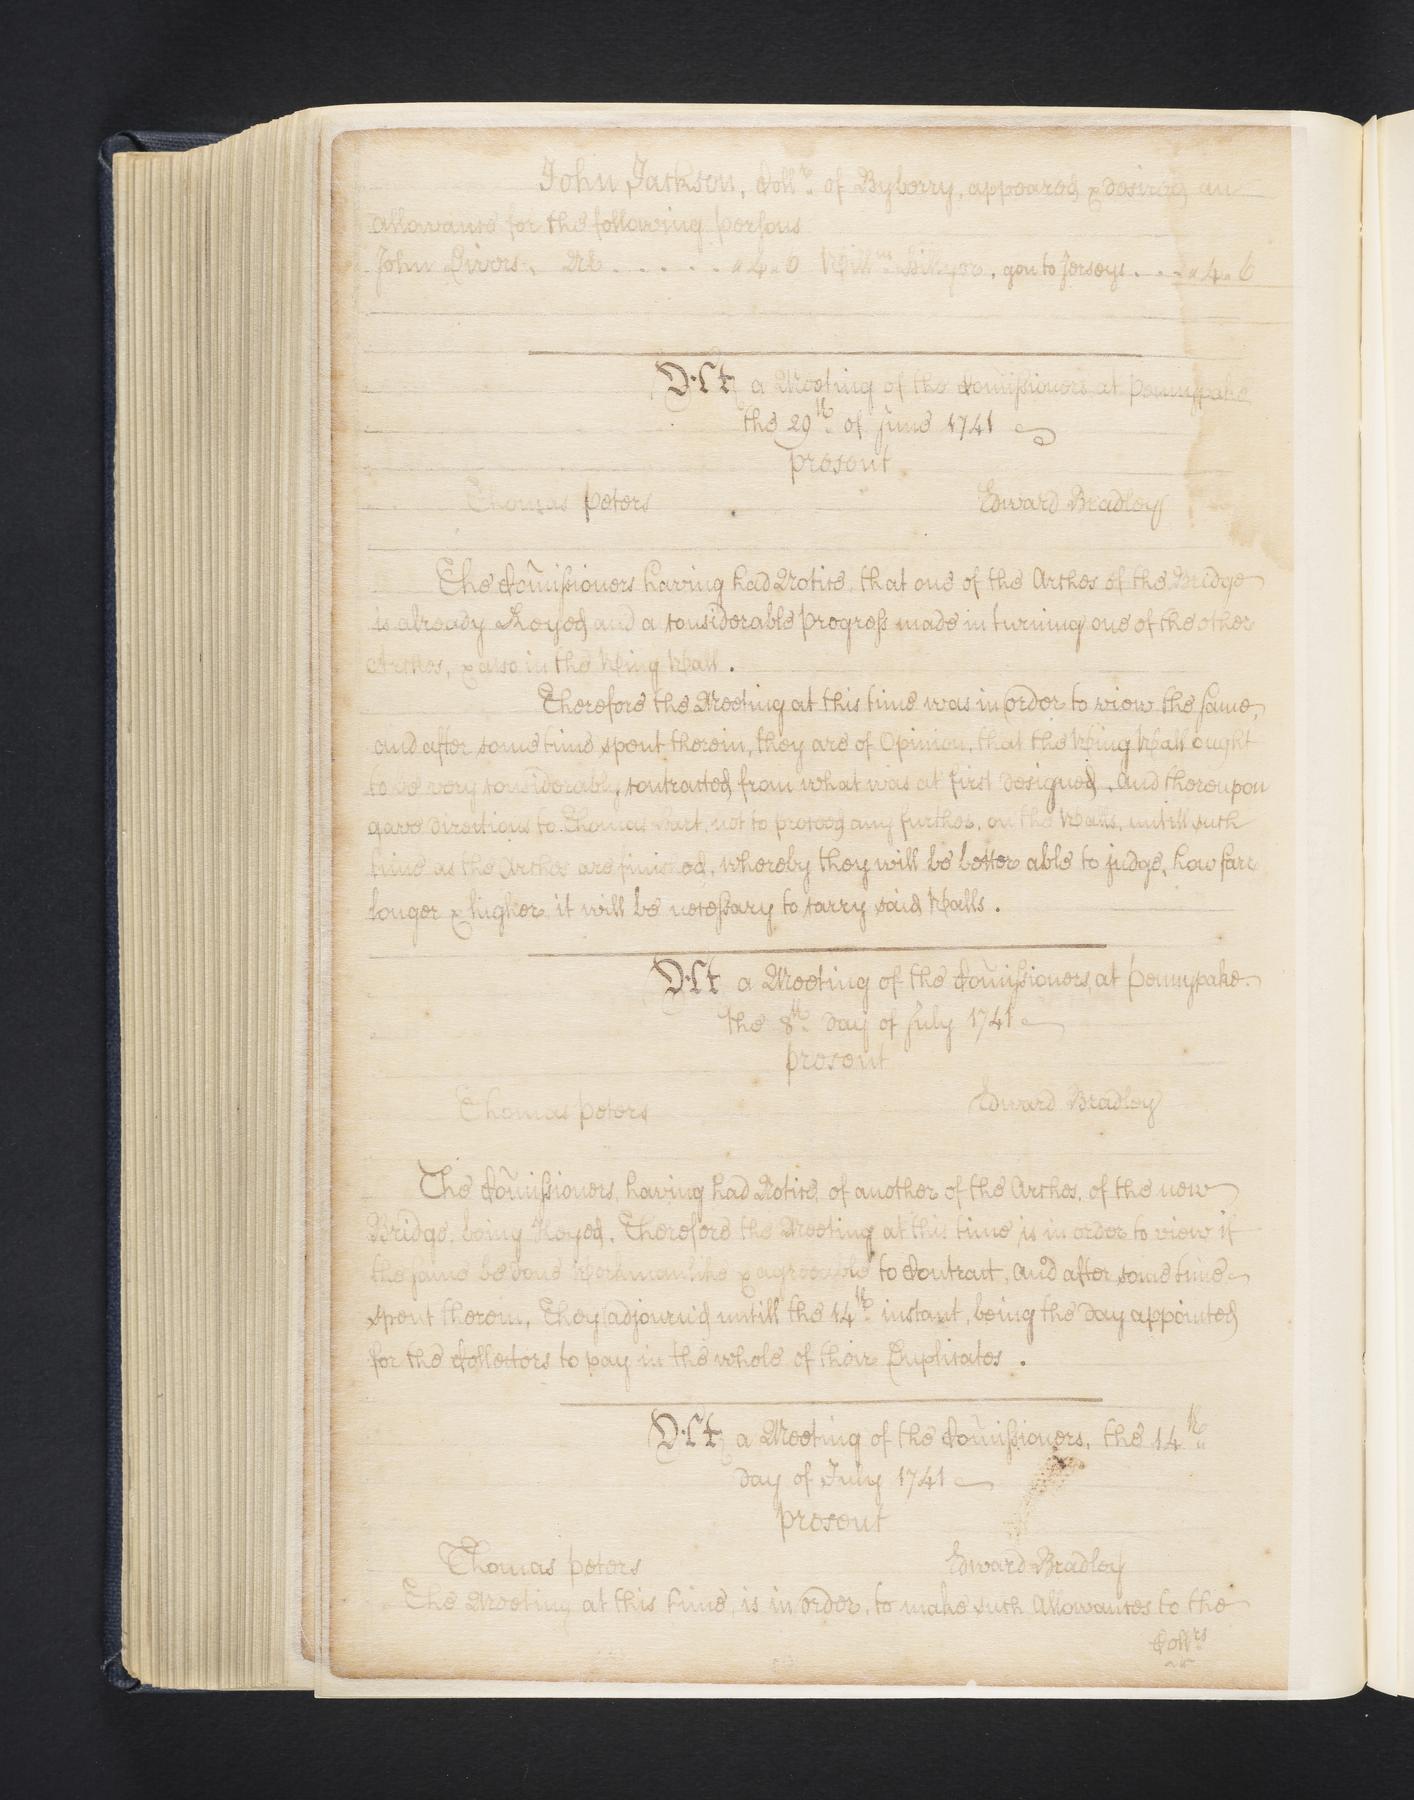 John Jackson, Coll.r of Byberry, appeared & desired an
allowance for the following persons
John .... "4.6 Will.m gon to Jerseys .... "4.6
At a Meeting of the Comissioners at Pennypake
the 29th of June 1741
present
Thomas Peters Edward Bradley
The Comissioners having had Notice, that one of the Arches of the Bridge
is already Keyed and a considerable progress made in turning one of the other
Arches, & also in the Wing Wall.
Therefore the Meeting at this time was in order to view the same,
and after some time spent therein, they are of Opinion, that the Wing Wall ought
to be very considerably contracted from what was at first designed, And thereupon
gave directions to Thomas Hart, not to proceed any further, on the Walls, untill such
time as the Arches are finished, whereby they will be better able to judge, how farr
longer & higher it will be necessary to carry said Walls.
At a Meeting of the Comissioners, at Pennypake.
the 8th day of July 1741
present
Thomas Peters Edward Bradley
The Comissioners, having had Notice, of another of the Arches, of the new
Bridge, being Keyed, Therefore the Meeting at this time is in order to view if
the same be done Workmanlike & agreeable to Contract, And after some time
spent therein, They adjourn'd untill the 14th instant, being the day appointed
for the Collectors to pay in the whole of their Duplicates.
At a Meeting of the Comissioners, the 14th
day of July 1741
present
Thomas Peters Edward Bradley
The Meeting at this time, is in order, to make such Allowances to the
Coll.rs